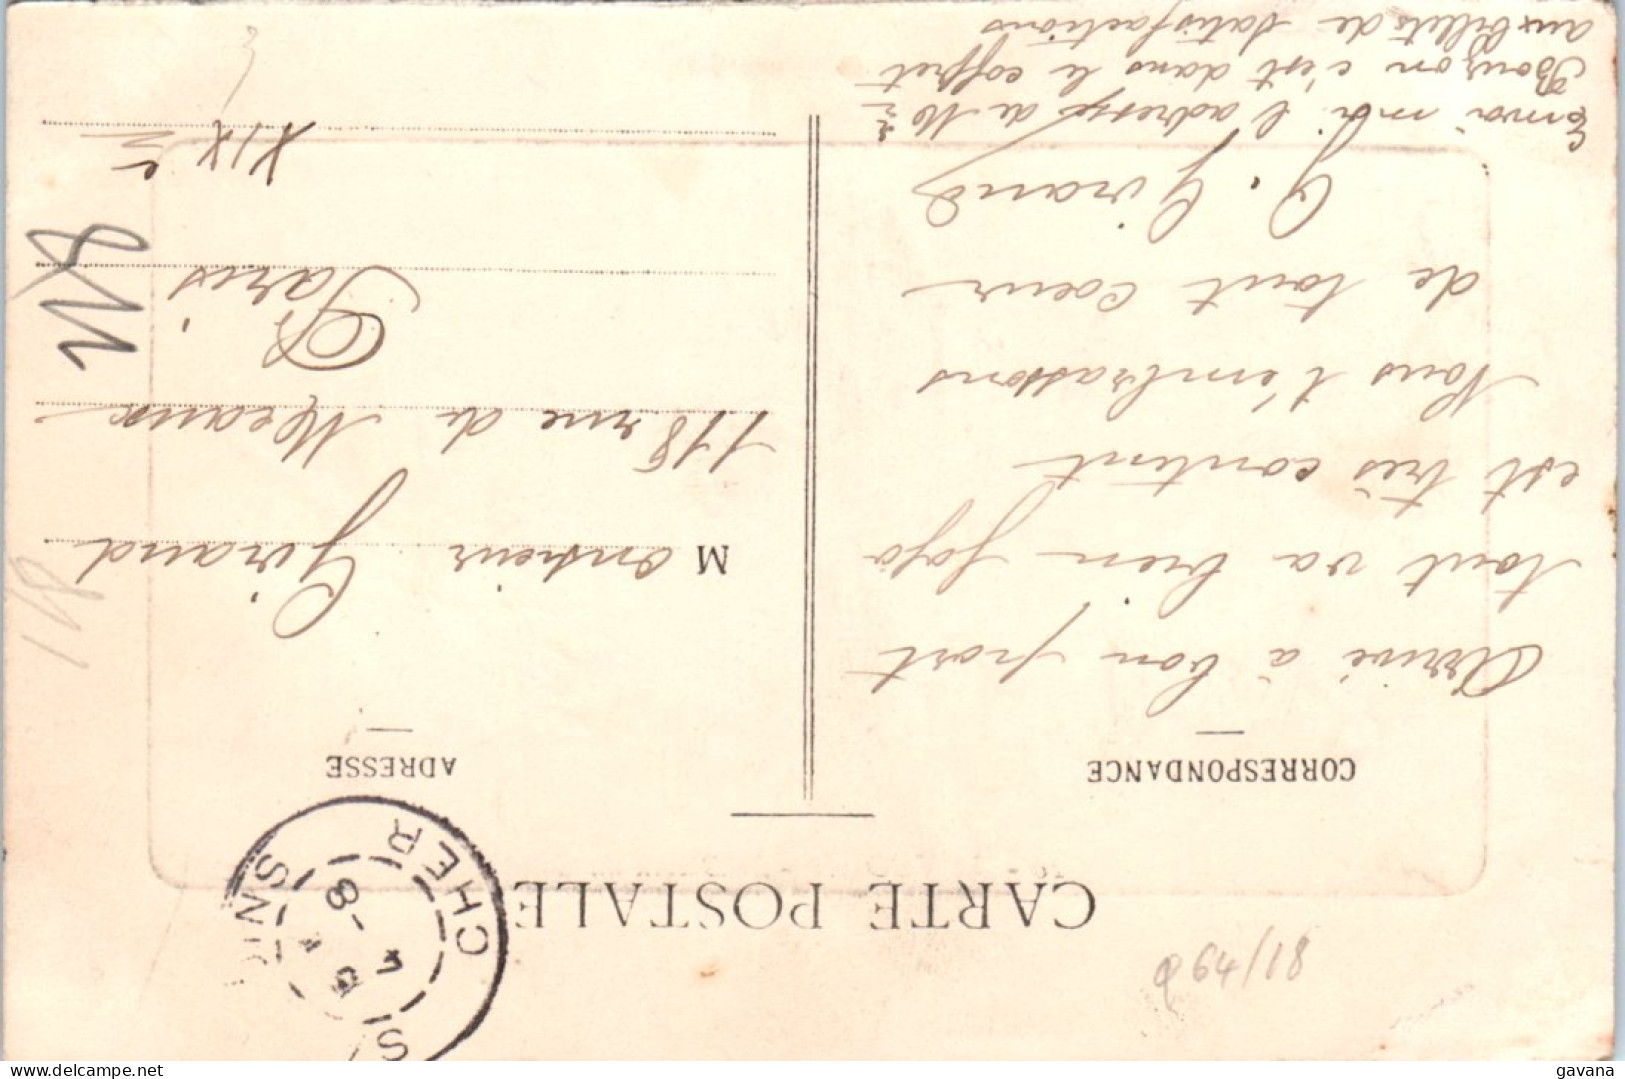 CARTE POSTALE
CORRESPONDANCE
Arrivé à bon port
tout va bien Jojo
est très content
Nous t'embrassons
de tout coeur
G. Girand
Envoi moi l'adresse de Mr
Bouzon c'est dans le coffret
aux billets de satisfactions
ADRESSE
Monsieur Girand
118 rue de Meaux
Paris
XIXE
118
118
CHER
64/18
gavana